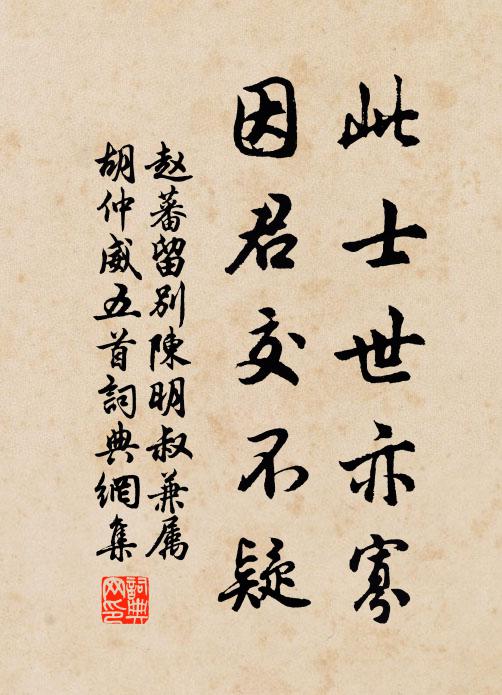 此士世亦寡
因君交不疑
赵蕃留别陳明叔兼属
胡仲威五首詞典網集
詞典网印